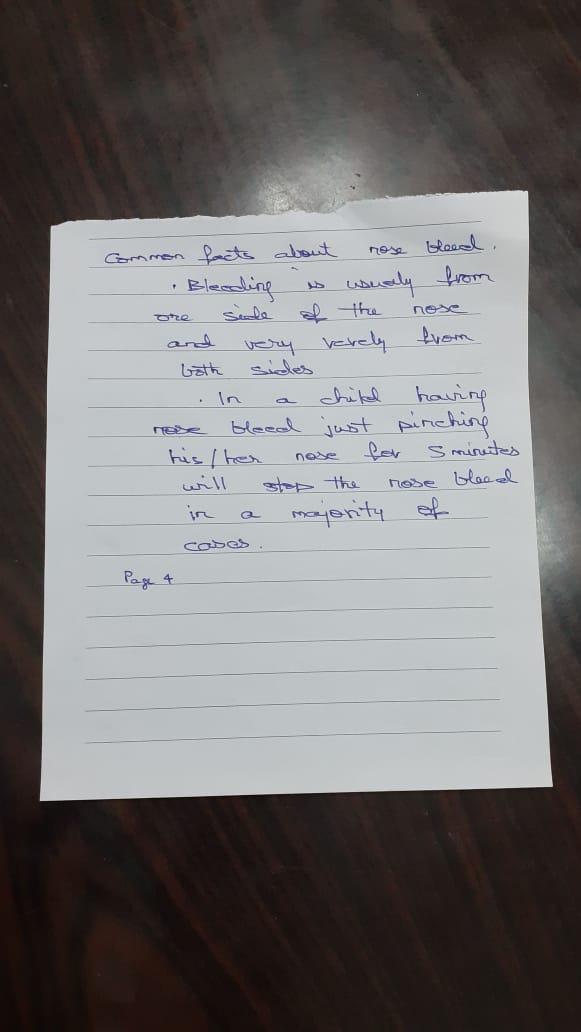 Common facts about nose bleed.
. Bleeding is usualy from
one side of the nose
and very rarely from
both sides
. In a child having
nose bleed just pinching
his/her nose for 5 minutes
will stop the nose bleed
in a majority of
cases.
Page 4